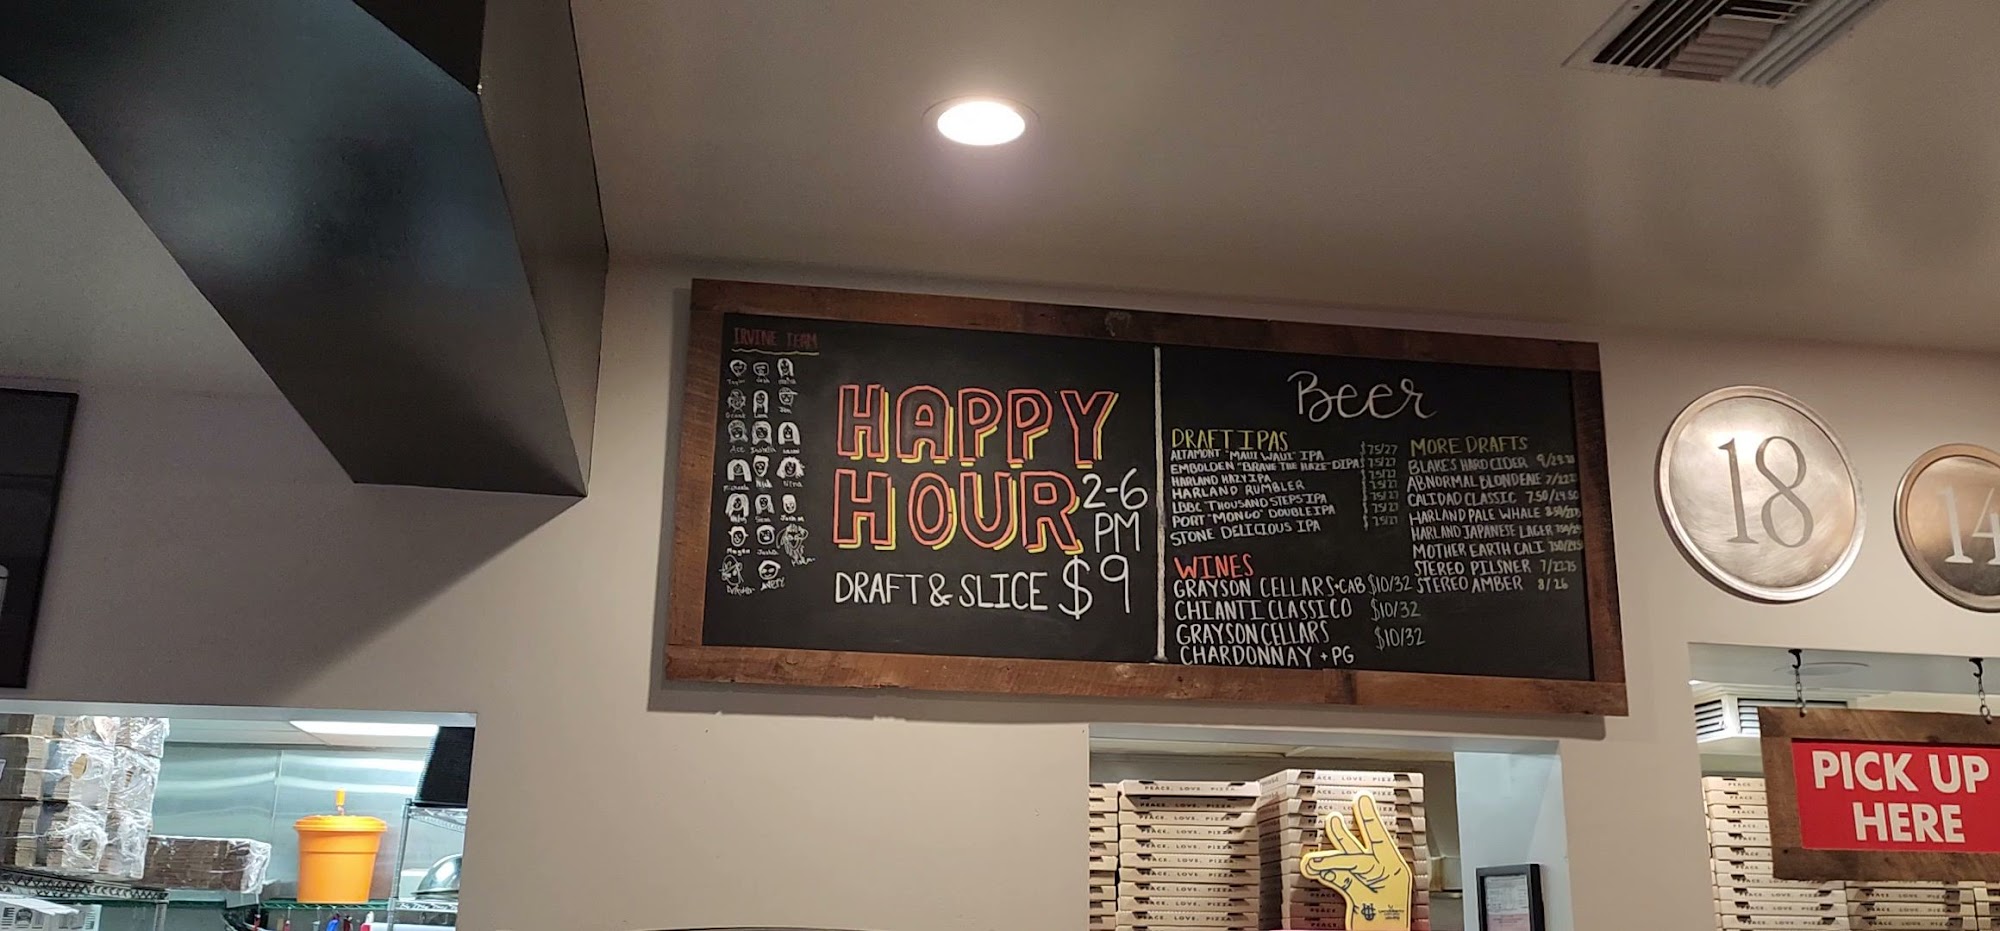 IRVINE TEAM
Josh
Liam
Jen
Ace Isabella
Michaela Nick Nina
Sam Josh M
Megan
HAPPY
HOUR 2-6
PM
DRAFT & SLICE $9
Beer
DRAFT IPAS
ALTAMONT "MAUI WAUI" IPA $7.5/27
EMBOLDEN "BRAVE THE HAZE" DIPA $7.5/27
HARLAND HAZY IPA $7.5/27
HARLAND RUMBLER $7.5/27
LBBC THOUSAND STEPS IPA $7.5/27
PORT "MONGO" DOUBLE IPA $7.5/27
STONE DELICIOUS IPA $7.5/27
WINES
GRAYSON CELLARS • CAB $10/32
CHIANTI CLASSICO $10/32
GRAYSON CELLARS $10/32
CHARDONNAY + PG
MORE DRAFTS
BLAKE'S HARD CIDER
ABNORMAL BLONDEALE
CALIDAD CLASSIC 7.50/24.50
HARLAND PALE WHALE
HARLAND JAPANESE LAGER
MOTHER EARTH CALI
STEREO PILSNER 7/22.75
STEREO AMBER 8/26
18
14
PICK UP
HERE
PEACE. LOVE. PIZZA.